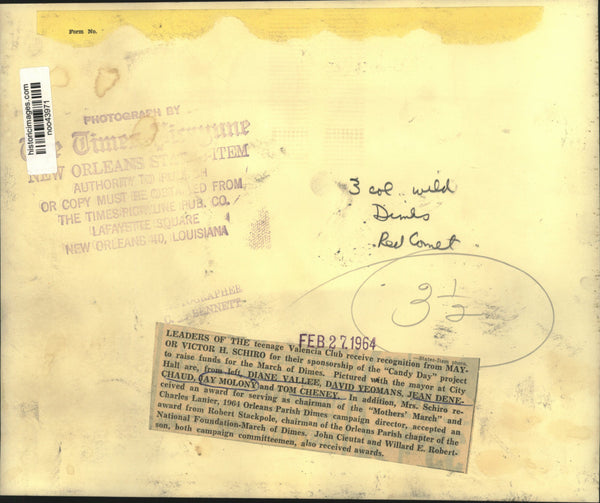 Form No.
historicimages.com
noo43971
PHOTOGRAPH BY
The Times-Picayune
NEW ORLEANS STATES-ITEM
AUTHORITY TO PUBLISH
OR COPY MUST BE OBTAINED FROM
THE TIMES-PICAYUNE PUB. CO.
LAFAYETTE SQUARE
NEW ORLEANS 40, LOUISIANA
3 col wild
Dimes
Red Comet
3 1/2
BENNETT
FEB 27 1964
—States-Item photo.
LEADERS OF THE teenage Valencia Club receive recognition from MAY-
OR VICTOR H. SCHIRO for their sponsorship of the "Candy Day" project
to raise funds for the March of Dimes. Pictured with the mayor at City
Hall are, from left, DIANE VALLEE, DAVID YEOMANS, JEAN DENE-
CHAUD, JAY MOLONY and TOM CHENEY. In addition, Mrs. Schiro re-
ceived an award for serving as chairman of the "Mothers' March" and
Charles Lanier, 1964 Orleans Parish Dimes campaign director, accepted an
award from Robert Stackpole, chairman of the Orleans Parish chapter of the
National Foundation-March of Dimes. John Cieutat and Willard E. Robert-
son, both campaign committeemen, also received awards.